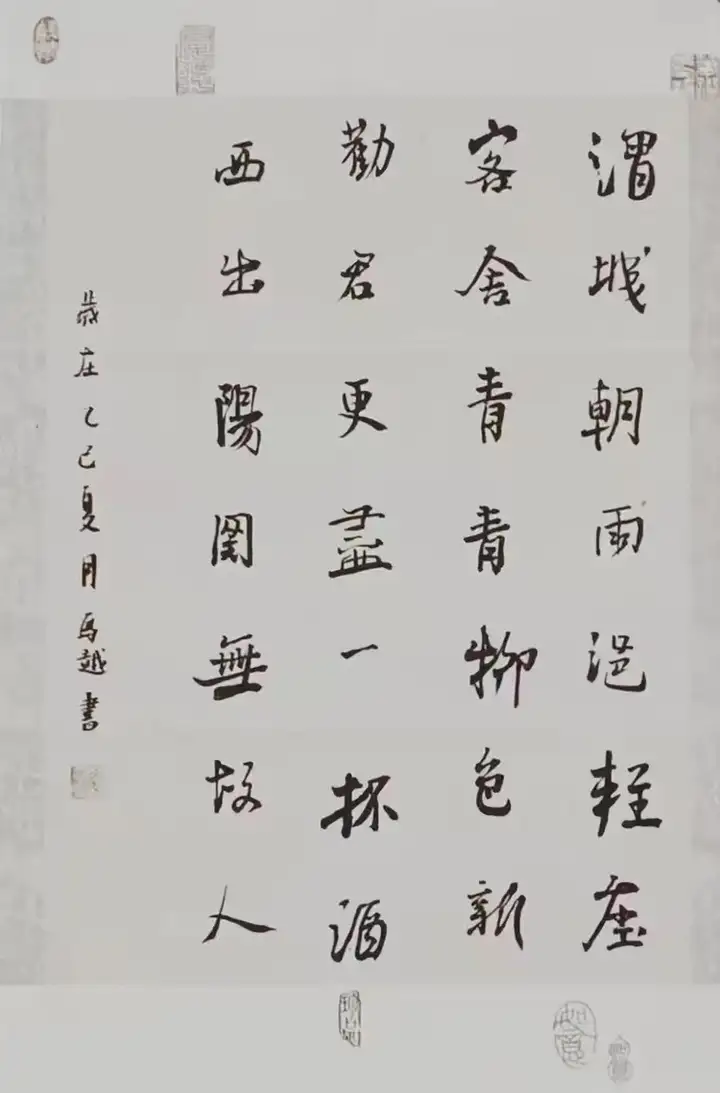 渭城朝雨浥輕塵
客舍青青柳色新
勸君更盡一杯酒
西出陽關無故人
歲在乙巳夏月馬越書
如意